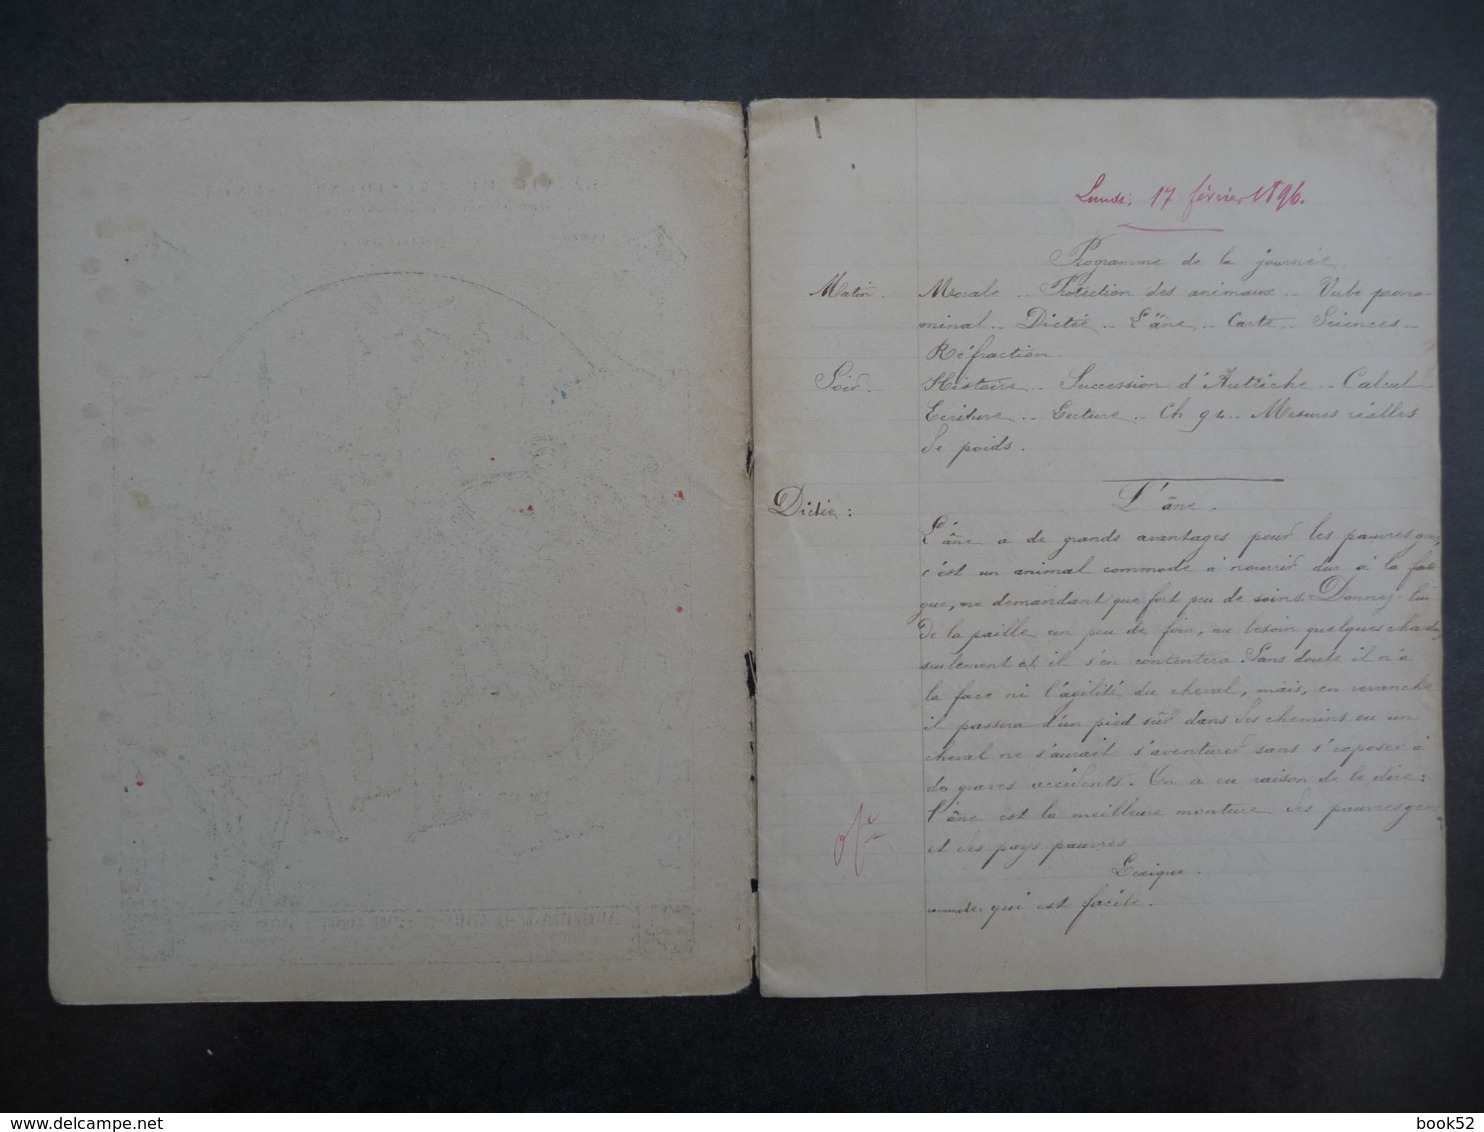 Lundi 17 février 1896.
Programme de la journée
Matin. Morale .. Protection des animaux .. Verbe prono-
minal .. Dictée .. L'âne .. Carte .. Sciences ..
Réfraction.
Soir. Histoire .. Succession d'Autriche .. Calcul
Ecriture .. Lecture .. Ch 92 .. Mesures réelles
de poids.
Dictée : L'âne.
L'âne a de grands avantages pour les pauvres gens,
c'est un animal commode à nourrir dur à la fati
gue, ne demandant que fort peu de soins. Donnez-lui
de la paille un peu de foin, au besoin quelques chardons
seulement et il s'en contentera. Sans doute il n'a
la face ni l'agilité du cheval, mais, en revanche
il passera d'un pied sûr dans des chemins ou un
cheval ne saurait s'aventurer sans s'exposer à
de graves accidents. On a eu raison de le dire :
l'âne est la meilleure monture des pauvres gens
et des pays pauvres
Lexique.
commode. qui est facile.
book52